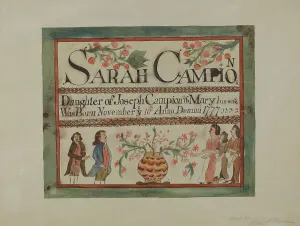 SARAH CAMPION
Daughter of Joseph Campion & Mary his wife
Was Born November ye 16 Anno Domini 1777